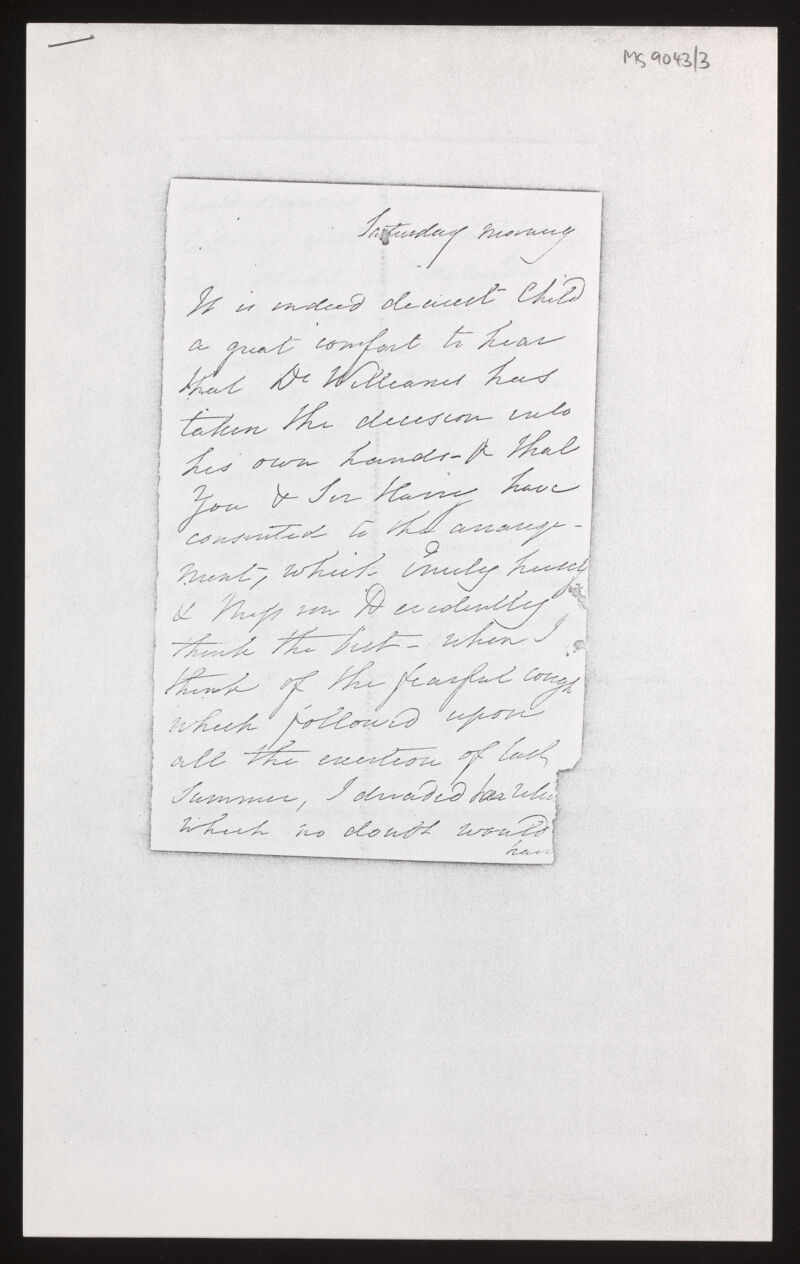 MS 9043/3
Saturday morning
It is indeed dearest Child
a great comfort to hear
that Dr Williams has
taken the decision into
his own hands - & that
You & Sir Harry have
consented to the arrange-
ment, which Emily
& Miss evidently
think the best - when I
think of the fearful cough
which followed upon
all the exertion of last
Summer, I dreaded
which no doubt would
have